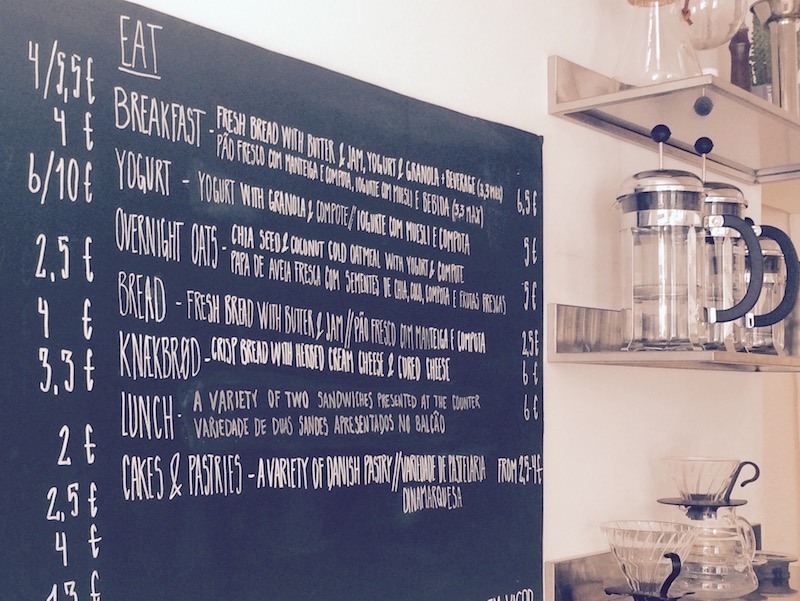 EAT
4/5,5 €
4 €
6/10 €
2,5 €
4 €
3,3 €
2 €
2,5 €
4 €
BREAKFAST - FRESH BREAD WITH BUTTER & JAM, YOGURT & GRANOLA + BEVERAGE (3,3 MAX)
PÃO FRESCO COM MANTEIGA E COMPOTA, IOGURTE COM MUESLI E BEBIDA (3,3 MAX) 6,5 €
YOGURT - YOGURT WITH GRANOLA & COMPOTE // IOGURTE COM MUESLI E COMPOTA 5 €
OVERNIGHT OATS - CHIA SEED & COCONUT COLD OATMEAL WITH YOGURT & COMPUTE
PAPA DE AVEIA FRESCA COM SEMENTES DE CHIA, COCO, COMPOTA E FRUTAS FRESCAS 5 €
BREAD - FRESH BREAD WITH BUTTER & JAM // PÃO FRESCO COM MANTEIGA E COMPOTA 2,5 €
KNÆKBRØD - CRISP BREAD WITH HERBED CREAM CHEESE & CURED CHEESE 6 €
LUNCH - A VARIETY OF TWO SANDWICHES PRESENTED AT THE COUNTER 6 €
VARIEDADE DE DUAS SANDES APRESENTADOS NO BALCÃO
CAKES & PASTRIES - A VARIETY OF DANISH PASTRY // VARIEDADE DE PASTELARIA FROM 2,5-4 €
DINAMARQUESA